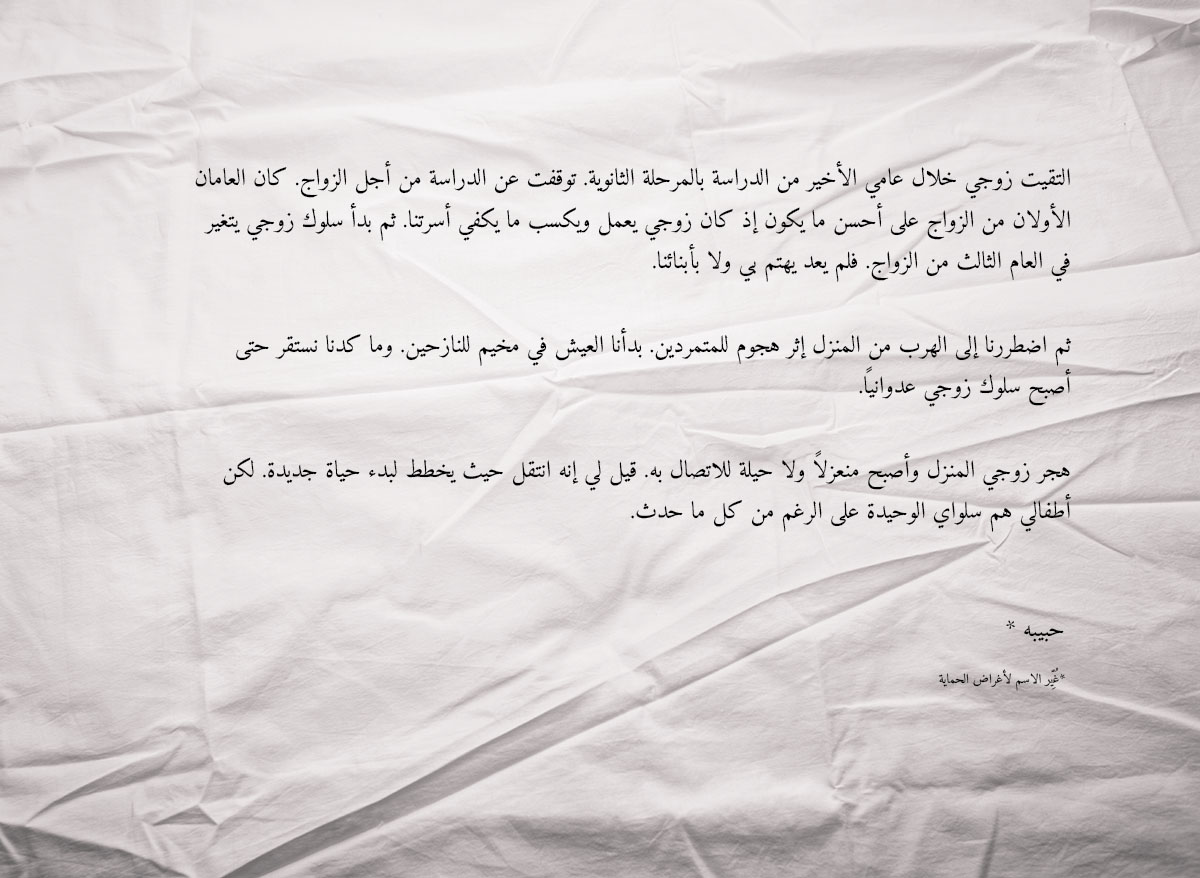 التقيت زوجي خلال عامي الأخير من الدراسة بالمرحلة الثانوية. توقفت عن الدراسة من أجل الزواج. كان العامان
الأولان من الزواج على أحسن ما يكون إذ كان زوجي يعمل ويكسب ما يكفي أسرتنا. ثم بدأ سلوك زوجي يتغير
في العام الثالث من الزواج. فلم يعد يهتم بي ولا بأبنائنا.
ثم اضطررنا إلى الهرب من المنزل إثر هجوم للمتمردين. بدأنا العيش في مخيم للنازحين. وما كدنا نستقر حتى
أصبح سلوك زوجي عدوانياً.
هجر زوجي المنزل وأصبح منعزلاً ولا حيلة للاتصال به. قيل لي إنه انتقل حيث يخطط لبدء حياة جديدة. لكن
أطفالي هم سلواي الوحيدة على الرغم من كل ما حدث.
حبيبه *
*غُيِّر الاسم لأغراض الحماية